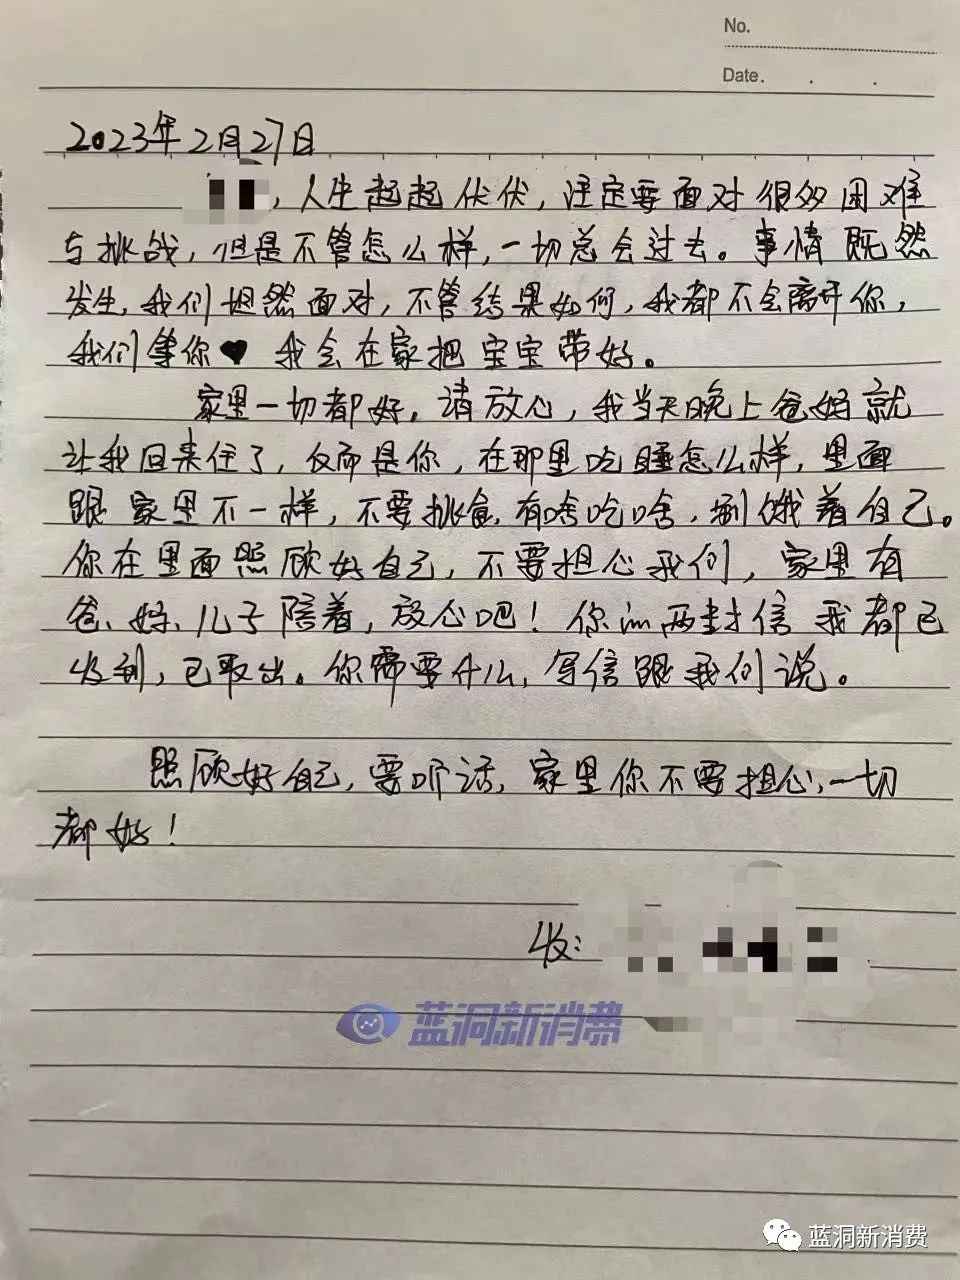 No.
Date.
2023年2月27日
，人生起起伏伏，注定要面对很多困难
与挑战，但是不管怎么样，一切总会过去。事情既然
发生，我们坦然面对，不管结果如何，我都不会离开你，
我们等你♥ 我会在家把宝宝带好。
家里一切都好，请放心，我当天晚上爸妈就
让我回来住了，反而是你，在那里吃睡怎么样，里面
跟家里不一样，不要挑食，有啥吃啥，别饿着自己。
你在里面照顾好自己，不要担心我们，家里有
爸、妈、儿子陪着，放心吧！你的两封信我都已
收到，已取出。你需要什么，写信跟我们说。
照顾好自己，要听话，家里你不要担心，一切
都好！
收：
蓝洞新消费
蓝洞新消费